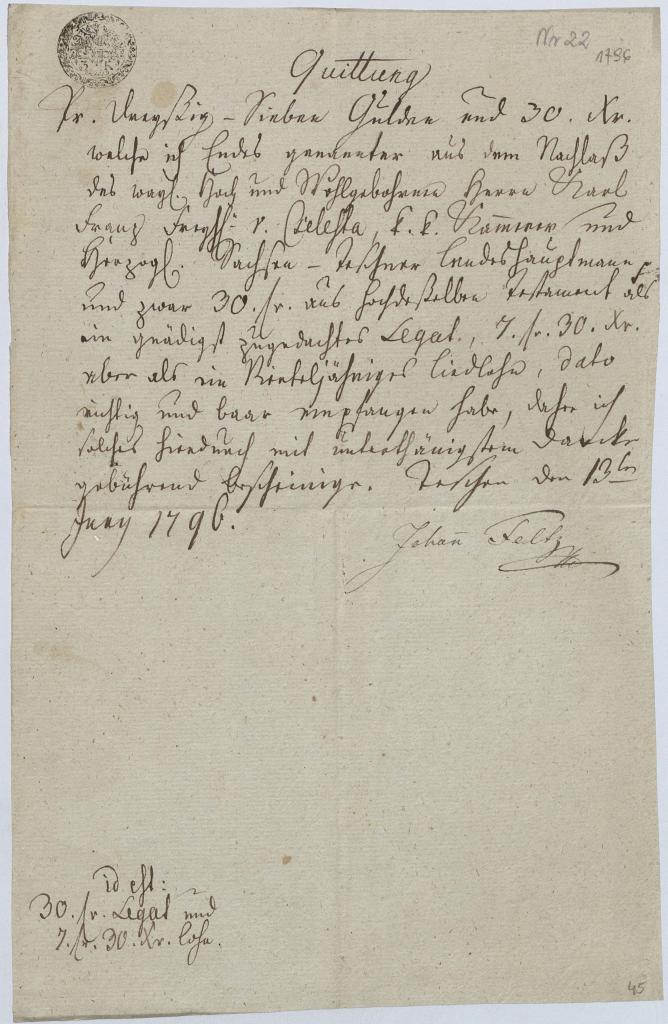 Nro 22
1796
Quittung
Pr. Dreyßig - Sieben Gulden und 30. Xr.
welche ich Endes genannter aus dem Nachlaß
des wayl. Hoch und Wohlgebohrnen Herrn Karl
Franz Freyh. v. Celesta, k. k. Kämmerer und
Herzogl. Sachsen - Teschner Landeshauptmann
und zwar 30. fr. aus hochdeßelben Testament als
ein gnädigst zugedachtes Legat, 7. fr. 30. Xr.
aber als ein Vierteljähriges Liedlohn, dato
richtig und baar empfangen habe, daher ich
solches hiedurch mit unterthänigstem Dancke
gebührend bescheinige. Teschen den 13ten
Juny 1796.
Johann Feltz
id est:
30. fr. Legat und
7. fr. 30. Xr. Lohn.
45